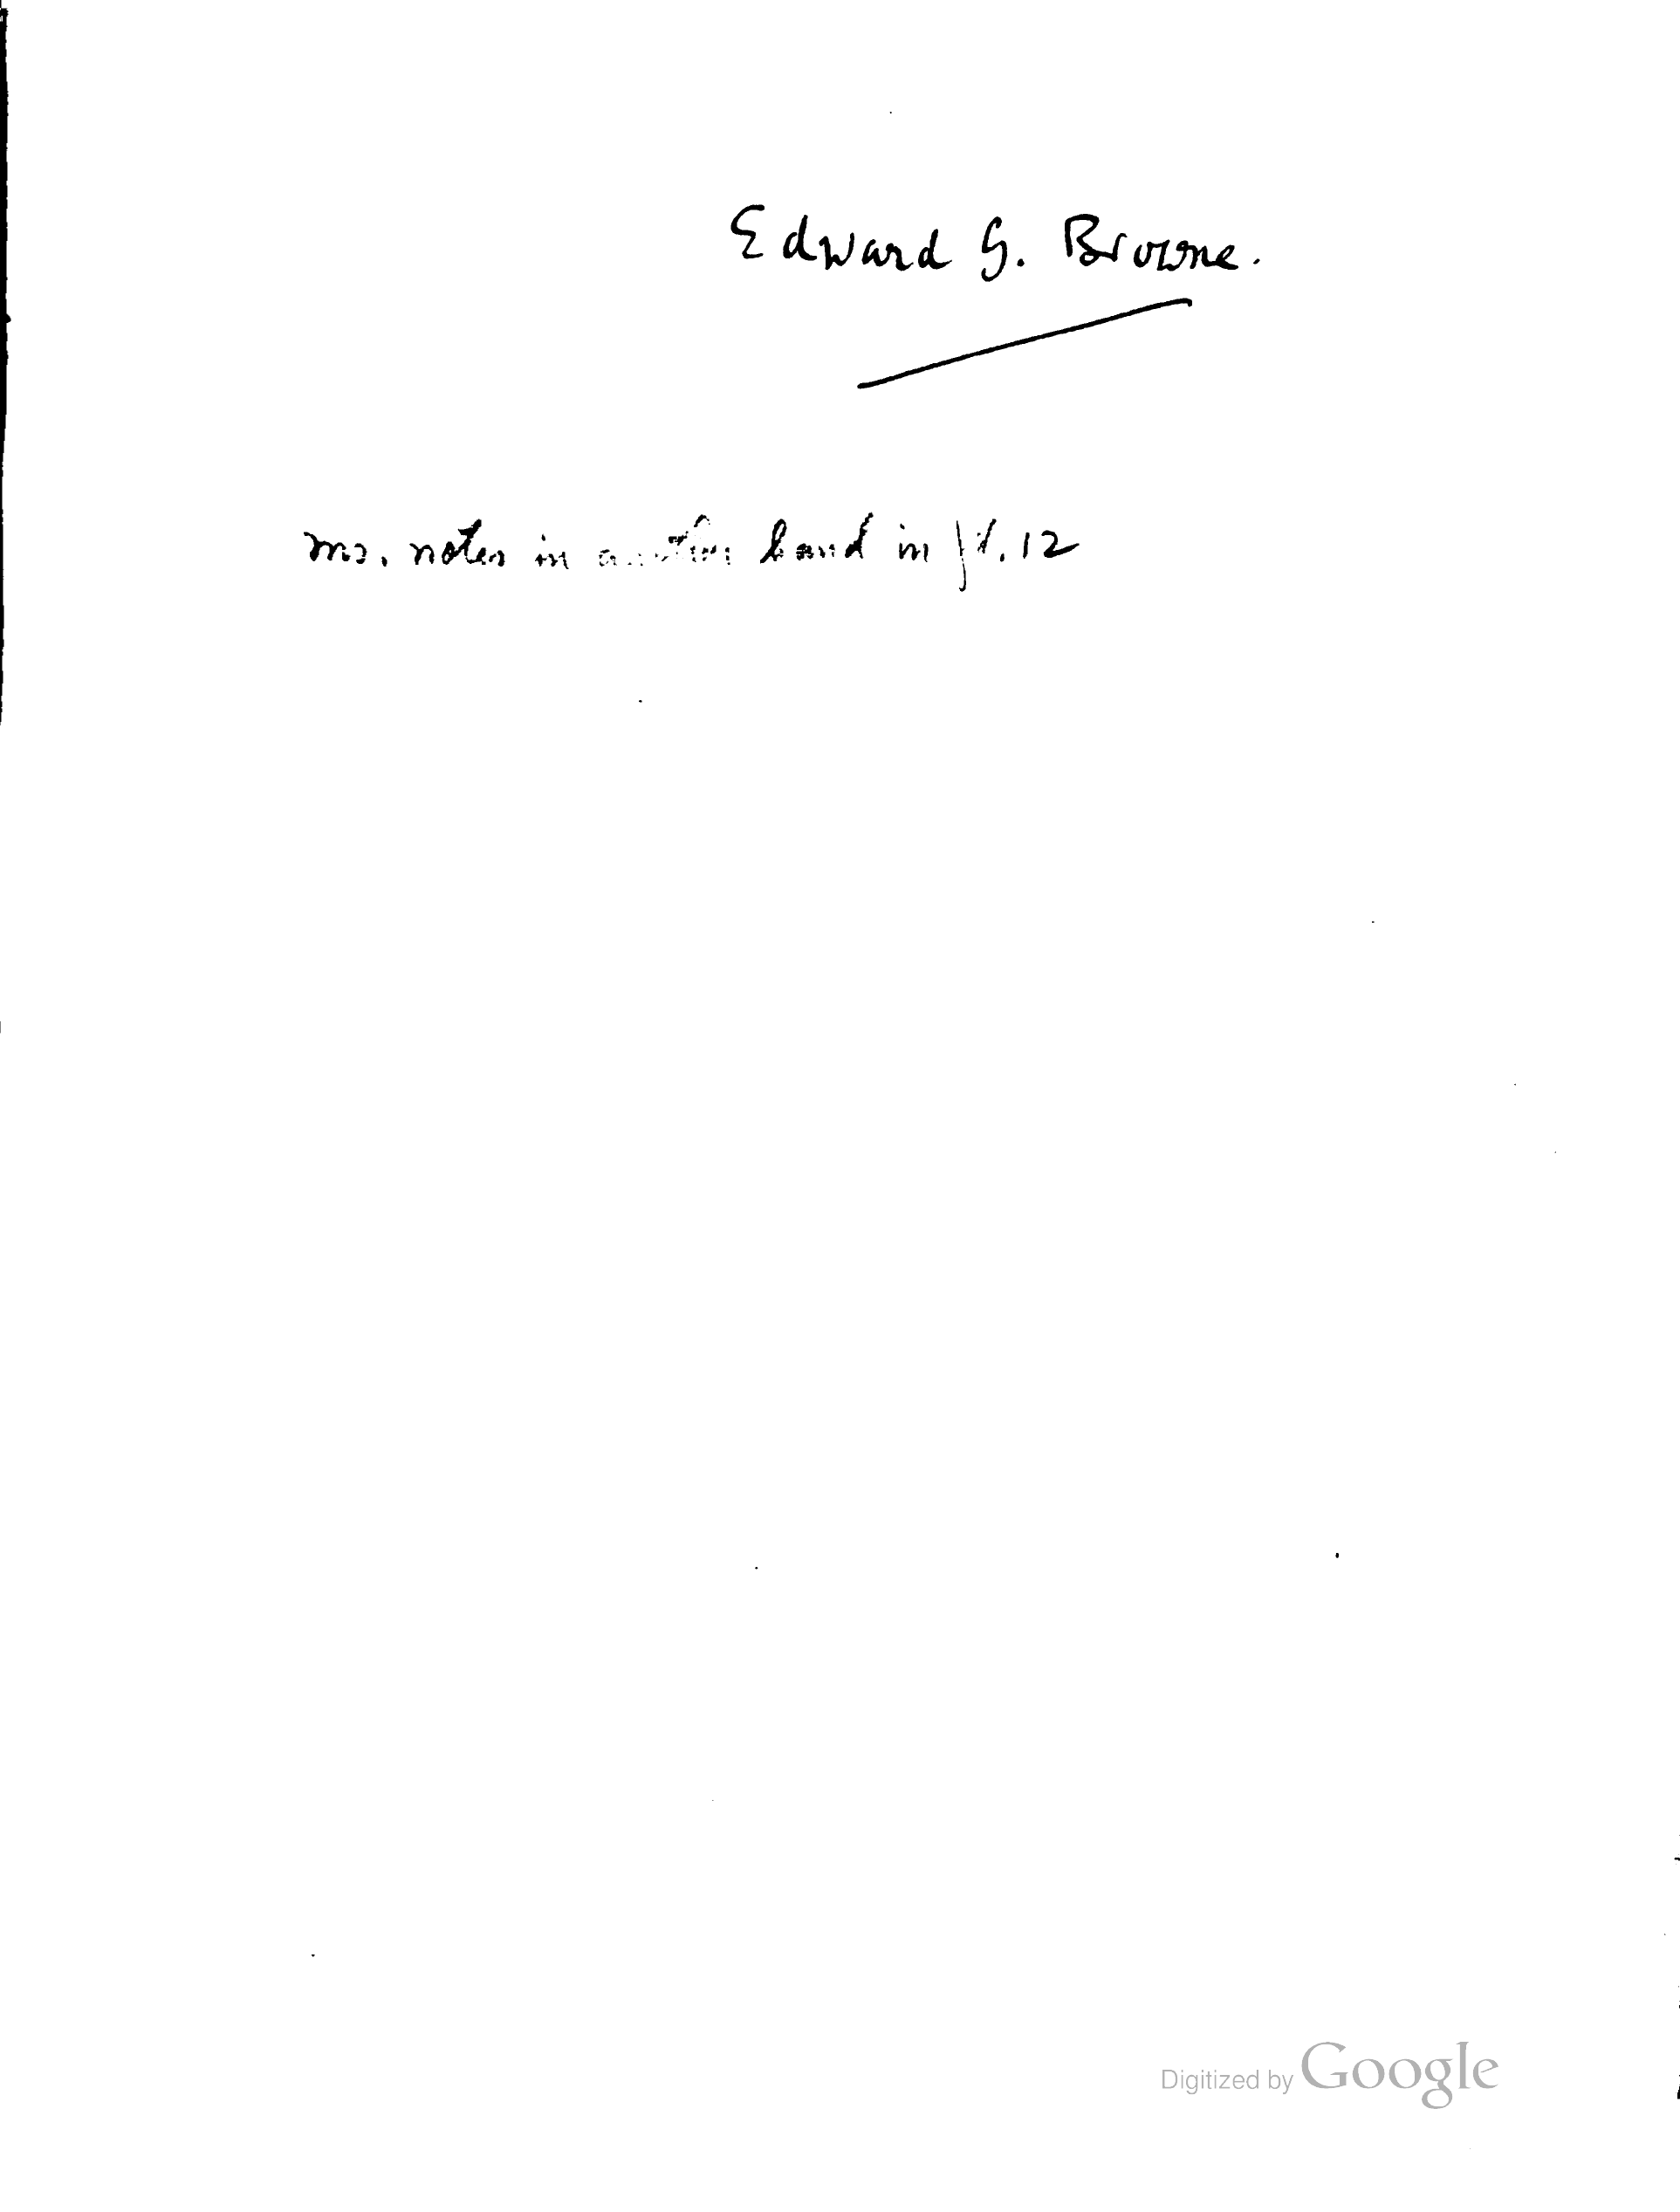 Edward G. Browne.
ms. notes in another hand in pt. 12
Digitized by Google